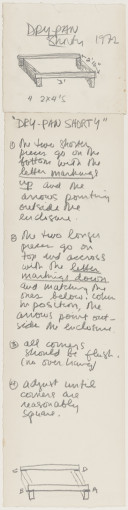 DRY-PAN
Shorty 1972
3'
4 2X4'S
"DRY-PAN SHORTY"
① The two shorter
pieces go on the
bottom with the
letter markings
up and the
arrows pointing
outside the
enclosure.
② The two longer
pieces go on
top and accross
with the letter
markings down
and matching the
ones below; when
in position, the
arrows point out-
side the enclosure.
③ all corners
should be flush.
(no over hang)
④ adjust until
corners are
reasonably
square.
A